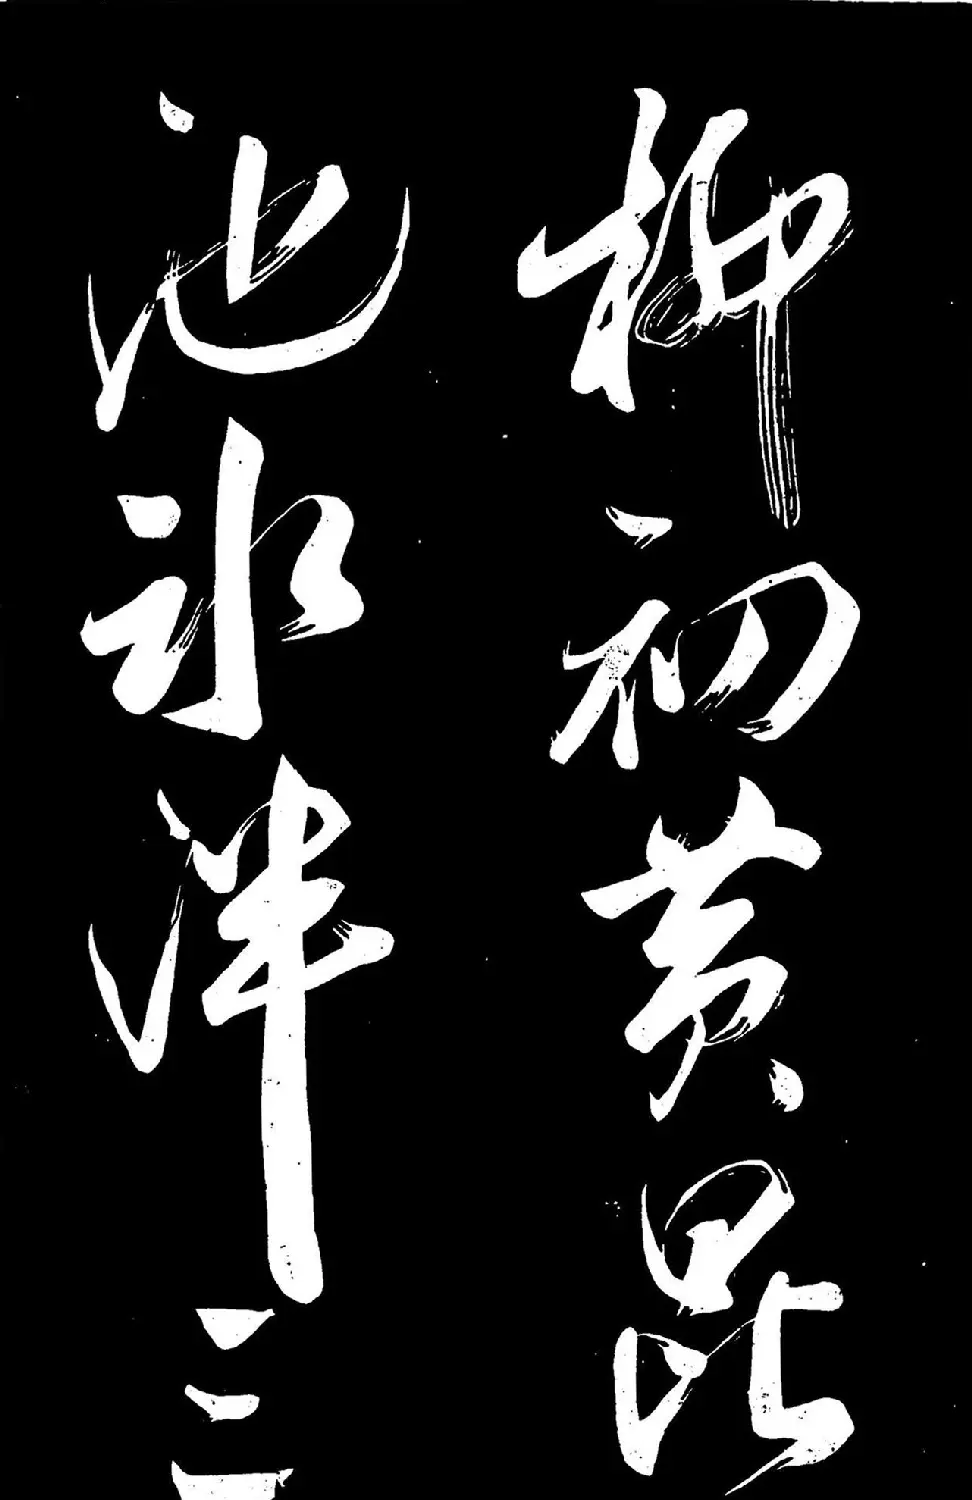 柳初黄昆
池冰泮三